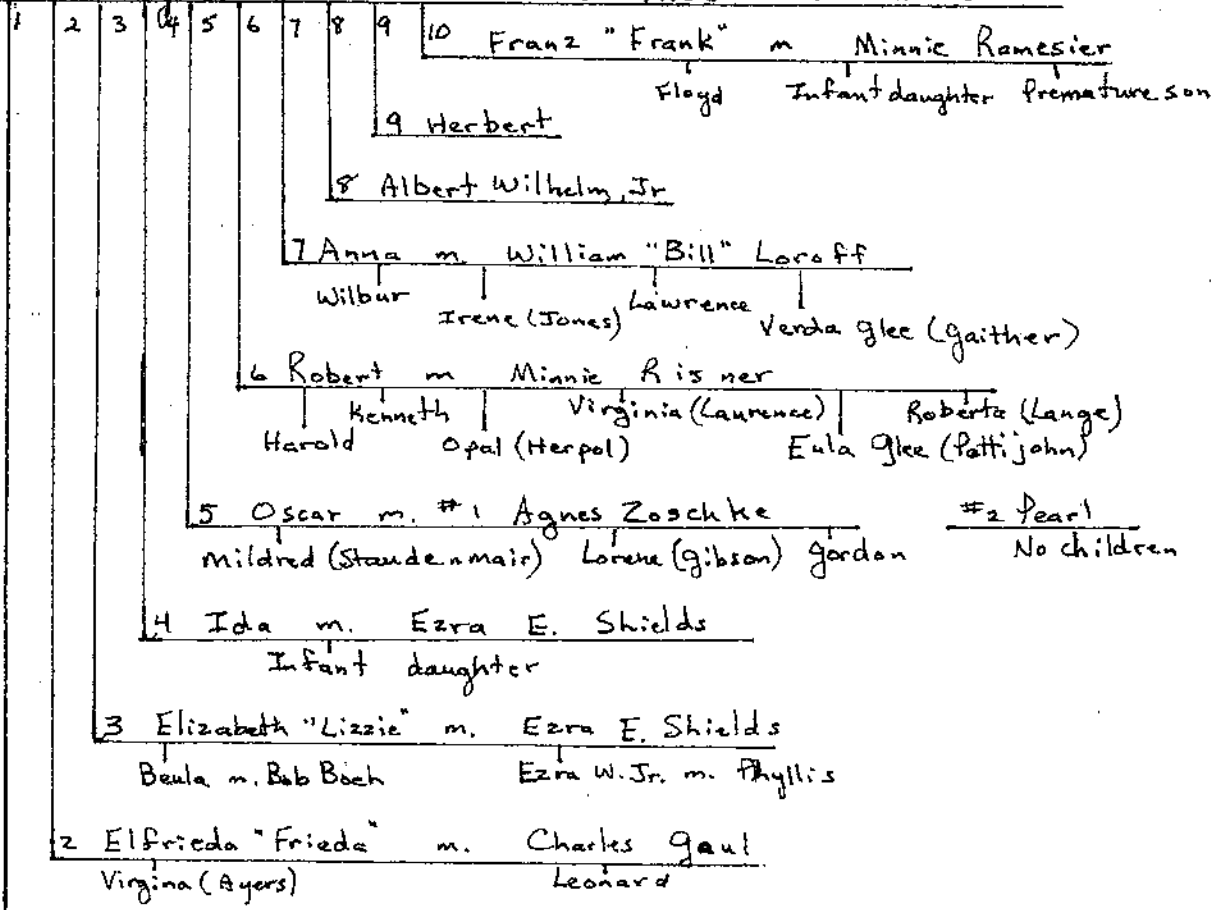 1 2 3 4 5 6 7 8 9 10 Franz "Frank" m Minnie Ramesier
Floyd Infant daughter Premature son
9 Herbert
8 Albert Wilhelm, Jr
7 Anna m. William "Bill" Loroff
Wilbur Irene (Jones) Lawrence Verda Glee (Gaither)
6 Robert m Minnie Risner
Harold Kenneth Opal (Herpol) Virginia (Laurence) Eula Glee (Pattijohn) Roberta (Lange)
5 Oscar m. #1 Agnes Zoschke #2 Pearl
Mildred (Staudenmair) Lorene (Gibson) Gordon No children
4 Ida m. Ezra E. Shields
Infant daughter
3 Elizabeth "Lizzie" m. Ezra E. Shields
Beula m. Bob Boeh Ezra W. Jr. m. Phyllis
2 Elfrieda "Frieda" m. Charles Gaul
Virgina (Ayers) Leonard